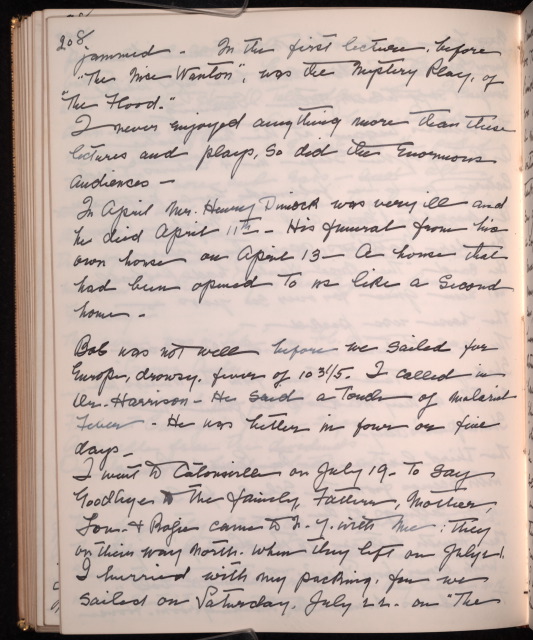 208
jammed - In the first lecture, before
"The Nice Wanton", was the Mystery Play, of
"The Flood."
I never enjoyed anything more than these
lectures and plays, So did the Enormous
Audiences -
In April Mr. Henry Dimock was very ill and
he died April 11th - His funeral from his
own house on April 13 - A house that
had been opened to us like a Second
home -
Bob was not well before we sailed for
Europe, drowsy, fever of 103 1/5 I called in
Dr. Harrison - He said a touch of malarial
Fever - He was better in four or five
days -
I went to Catonsville on July 19 - To Say
Goodbye to the family, Father, Mother,
& came to N. Y. with me: they
on their way North. When they left on July 21.
I hurried with my packing, for we
sailed on Saturday, July 22. on "The